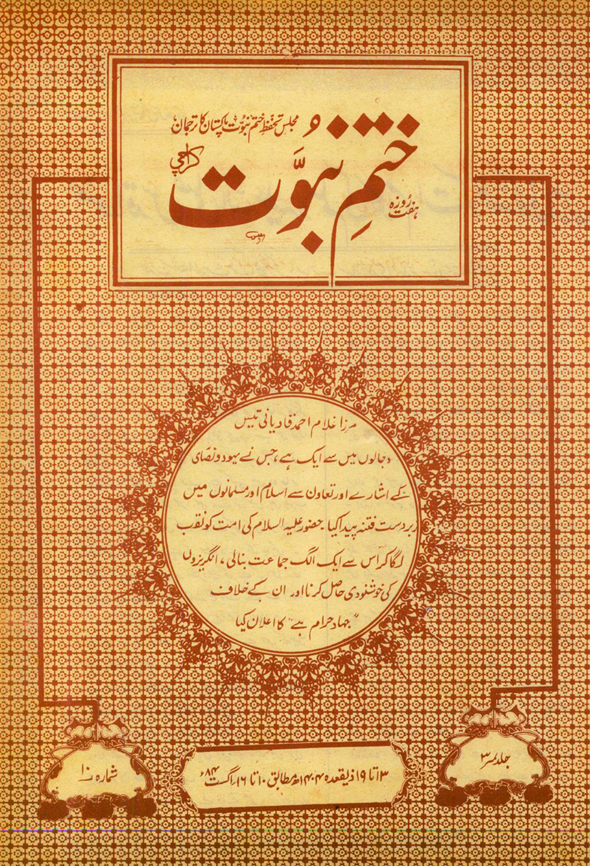 مجلس تحفظ ختم نبوت پاکستان کا ترجمان
ہفت روزہ
ختمِ نبوَّت
کراچی
مرزا غلام احمد قادیانی تیس
دجالوں میں سے ایک ہے، جس نے یہود و نصاریٰ
کے اشارے اور تعاون سے اسلام اور مسلمانوں میں
زبردست فتنہ پیدا کیا۔ حضور علیہ السلام کی امت کو نقب
لگا کر اس سے ایک الگ جماعت بنالی، انگریزوں
کی خوشنودی حاصل کرنا اور ان کے خلاف
"جہاد حرام ہے" کا اعلان کیا
جلد نمبر ۳
۱۳ تا ۱۹ ذیقعدہ ۱۴۰۴ھ مطابق ۱۰ تا ۱۶ اگست ۸۴ء
شمارہ ۱۰